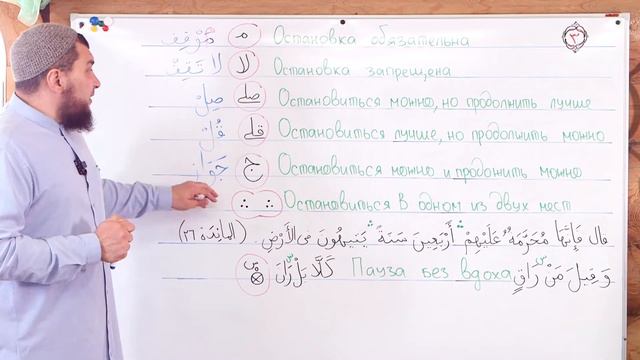 ٣
م Остановка обязательна
لا لَا تَقِفْ Остановка запрещена
صلے صِلْ Остановиться можно, но продолжить лучше
قلے قُلْ Остановиться лучше, но продолжить можно
ج جَوَاز Остановиться можно и продожить можно
∴ ∴ Остановиться в одном из двух мест
قال فَإِنَّهَا مُحَرَّمَةٌ عَلَيْهِمْ ۛ أَرْبَعِينَ سَنَةً ۛ يَتِيهُونَ فِى الْأَرْضِ. (المائدة ٢٦)
وَقِيلَ مَنْ س رَاقٍ Пауза без вдоха كَلَّا بَلْ س رَانَ س